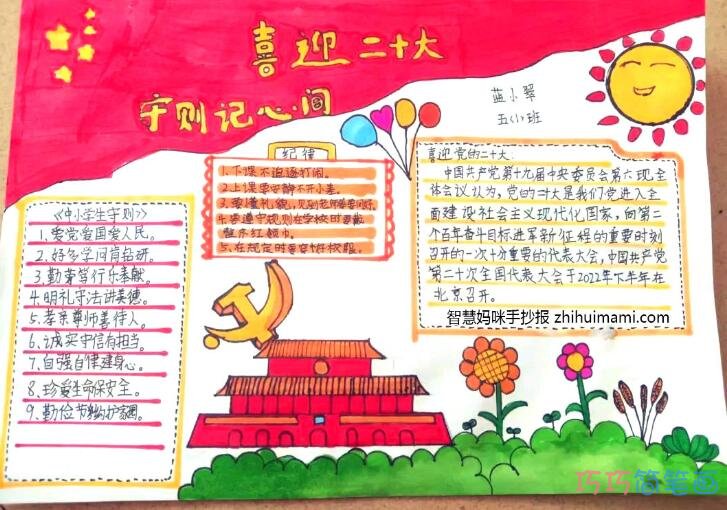 喜迎二十大
守则记心间
蓝小翠
五(1)班
纪律
1.下课不追逐打闹。
2.上课要安静不开小差。
3.要懂礼貌,见到老师要问好。
4.要遵守规则在学校时要戴
整齐红领巾。
5.在规定时要穿好校服。
《中小学生守则》
1.爱党爱国爱人民。
2.好多学问肯钻研。
3.勤劳笃行乐奉献。
4.明礼守法讲美德。
5.孝亲尊师善待人。
6.诚实守信有担当。
7.自强自律健身心。
8.珍爱生命保安全。
9.勤俭节约护家园。
喜迎党的二十大:
中国共产党第十九届中央委员会第六现全
体会议认为,党的二十大是我们党进入全
面建设社会主义现代化国家,向第二
个百年奋斗目标进军新征程的重要时刻
召开的一次十分重要的代表大会,中国共产党
第二十次全国代表大会于2022年下半年在
北京召开。
智慧妈咪手抄报 zhihuimami.com
巧巧简笔画